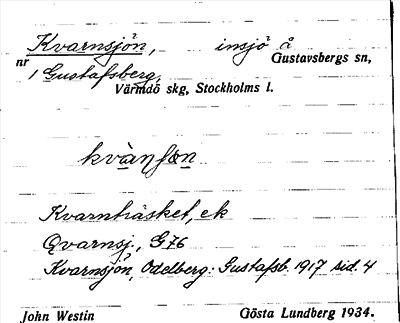 Kvarnsjön, insjö å
nr 1 Gustafsberg, Gustavsbergs sn,
Värmdö skg, Stockholms l.
Kvarnträsket, ek
Qvarnsj., G76
Kvarnsjön, Odelberg: Gustafsb. 1917 sid. 4
John Westin Gösta Lundberg 1934.